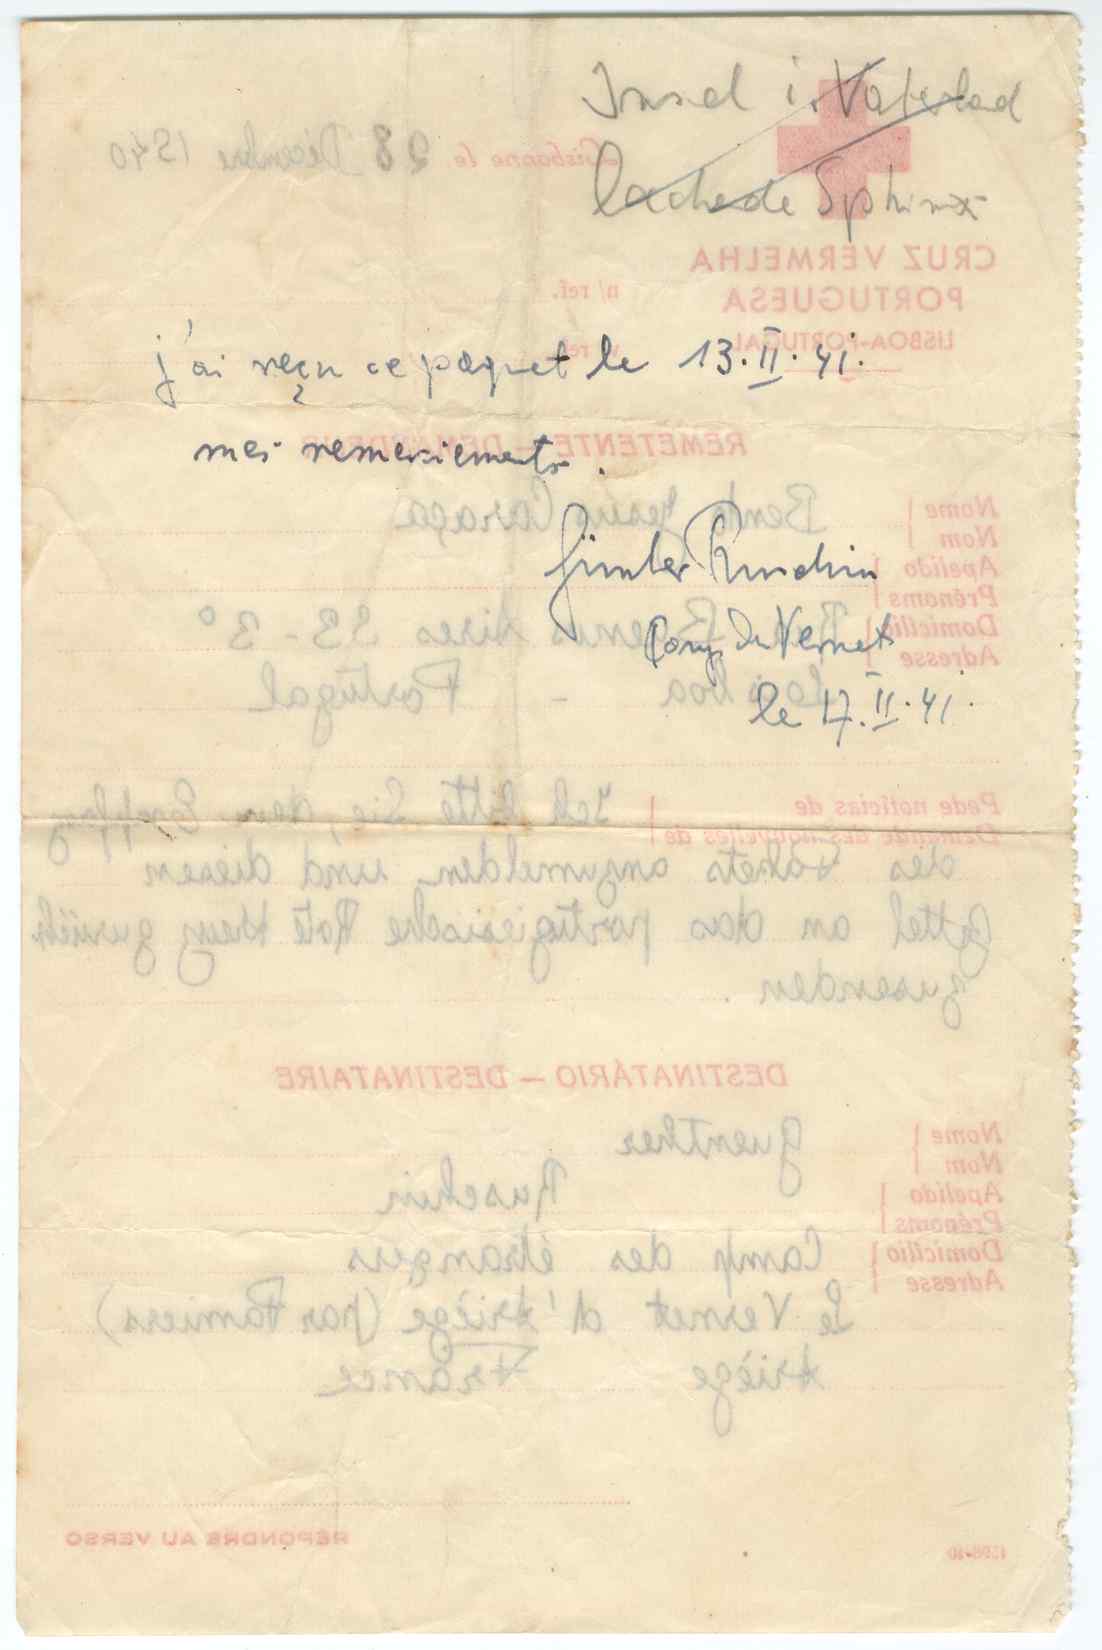 Insel i. Vaterlad
lachede Sphinx
j'ai reçu ce paquet le 13.II.41.
mes remerciements.
Günter Ruschin
Camp du Vernet
le 17.II.41.
Lisbonne le, 28 Décembre 1940
CRUZ VERMELHA
PORTUGUESA
LISBOA-PORTUGAL
n/ ref.
v/ ref.
REMETENTE — DEMANDEUR
Nome
Nom
Bento Jesus Caraça
Apelido
Prénoms
Domicílio
Adresse
Buenos Aires 33-3º
Lisboa - Portugal
Pede notícias de
Demande des nouvelles de
Ich bitte Sie, den Empfang
des Pakets anzumelden und diesen
Zettel an das portugiesische Rote Kreuz zurück
zusenden.
DESTINATÁRIO — DESTINATAIRE
Nome
Nom
Guenther
Apelido
Prénoms
Ruschin
Domicílio
Adresse
Camp des étrangers
Le Vernet d'Ariège (par Pamiers)
Ariège France
RÉPONDRE AU VERSO